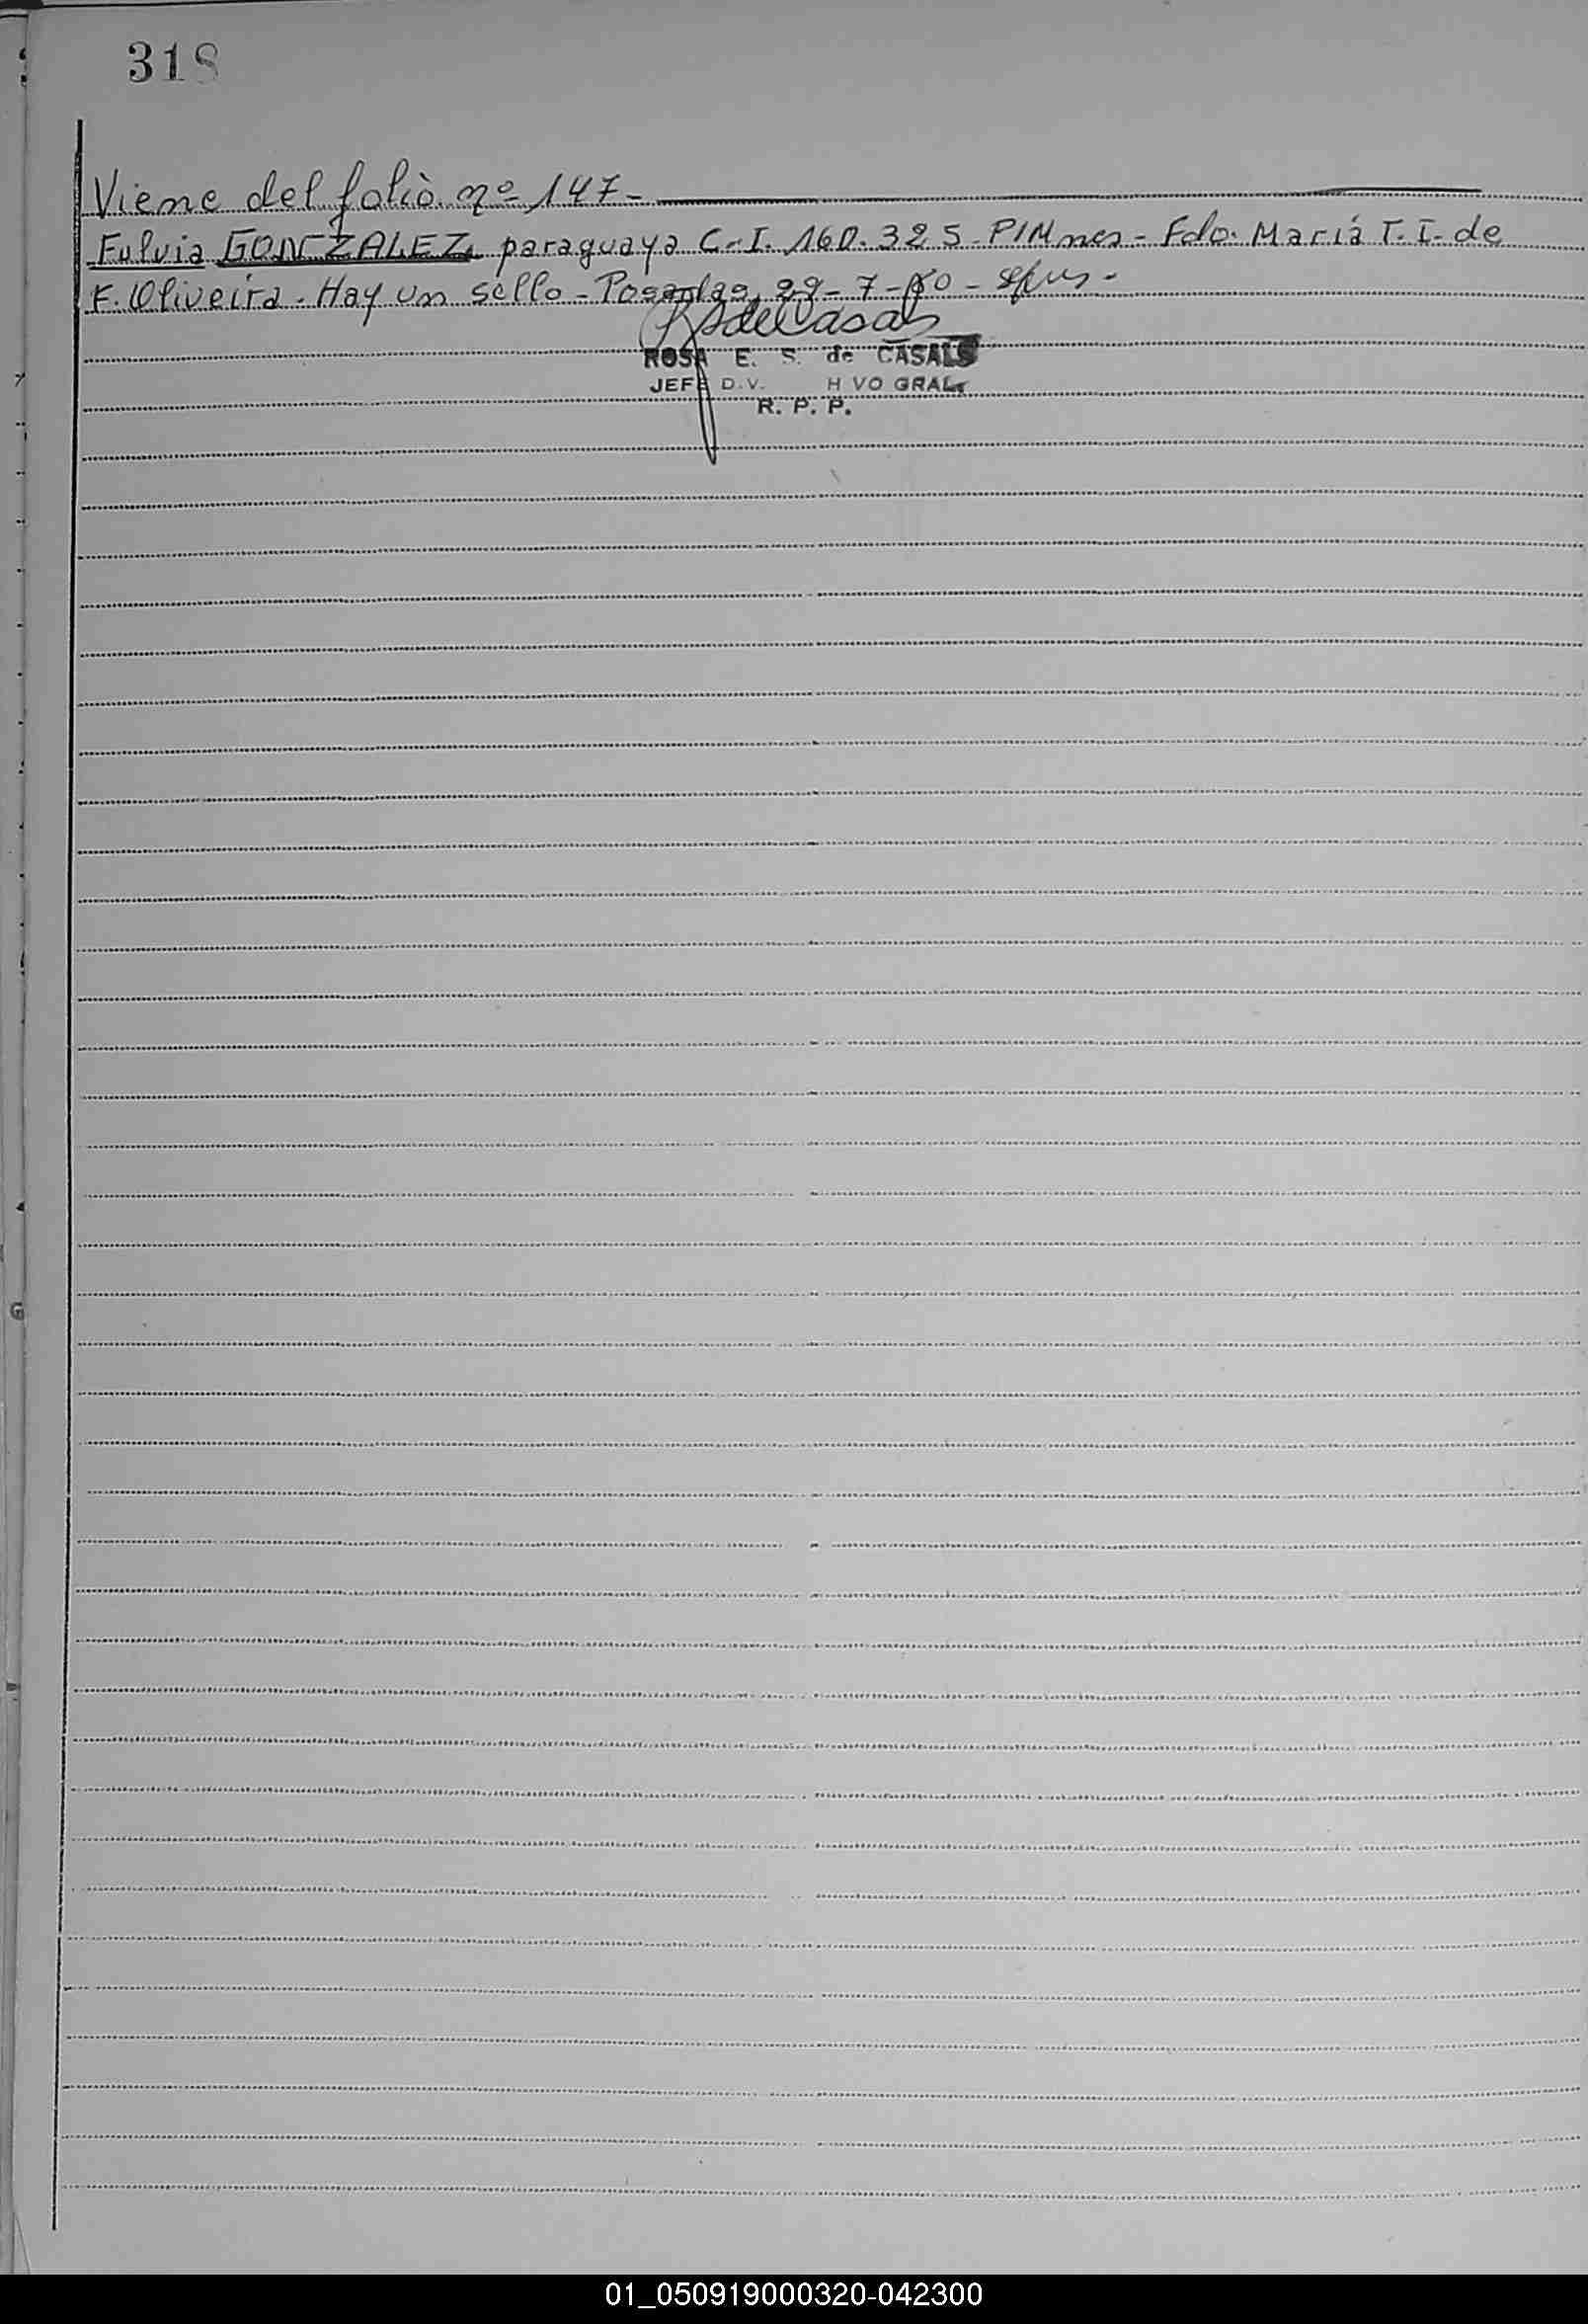 318
Viene del folio nº 147-
Fulvia GONZALEZ, paraguaya C.I. 160.325-P/Mnes- Fdo. María T. I. de
F. Oliveira. Hay un sello- Posadas, 29-7-80-
ROSA E. S. de CASALS
JEFE D.V. H VO GRAL.
R. P. P.
01_050919000320-042300